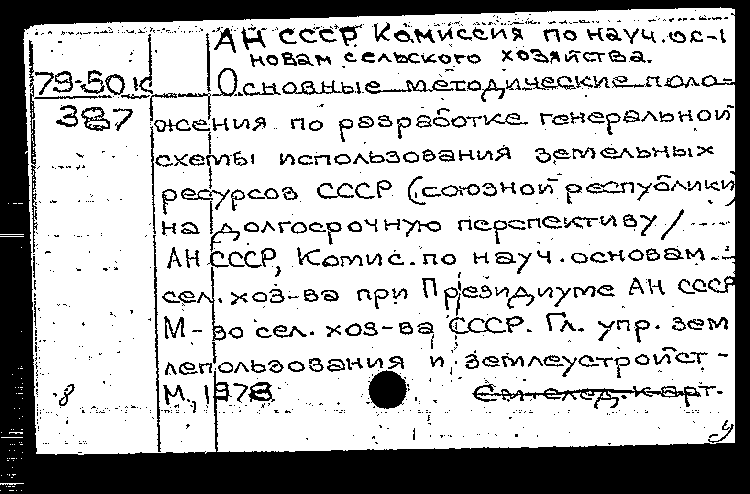 АН СССР Комиссия по науч. ос-
новам сельского хозяйства.
79-50к Основные методические поло-
387 жения по разработке генеральной
схемы использования земельных
ресурсов СССР (союзной республики)
на долгосрочную перспективу /
АН СССР, Комис. по науч. основам
сел. хоз-ва при Президиуме АН СССР
М-во сел. хоз-ва СССР. Гл. упр. зем
лепользования и землеустройст-
8 М., 1978